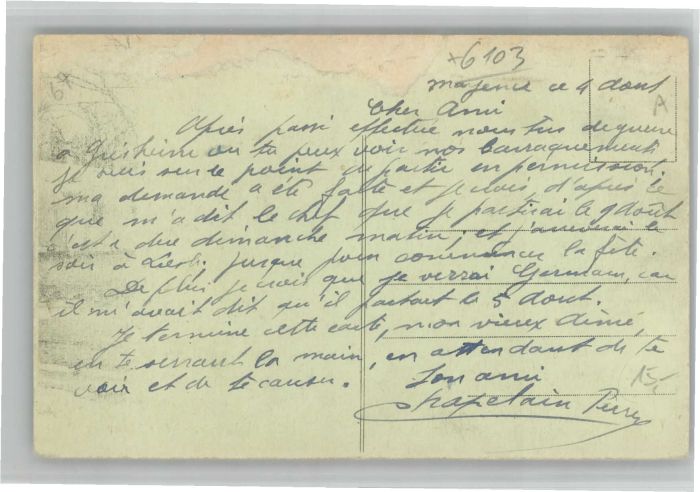 x6103
67
Mayence ce 4 Aout
A
Cher Ami
Après passi effectué nous tirs de guerre
a Griesheim ou tu peux voir nos barraquements
je suis sur le point de partir en permission
ma demande a été faite et je crois d'après le
que m'a dit le chef que je partirai le 9 Août
c'est a dire dimanche matin, et j'arriverai le
soir à jusque pour commencer la fête.
De plus je crois que je verrai Germain, car
il m'avait dit qu'il partait le 5 Aout.
Je termine cette carte, mon vieux Aimé,
en te serrant la main, en attendant de te
voir et de te causer. Ton ami
15,
Chapelain Pierre